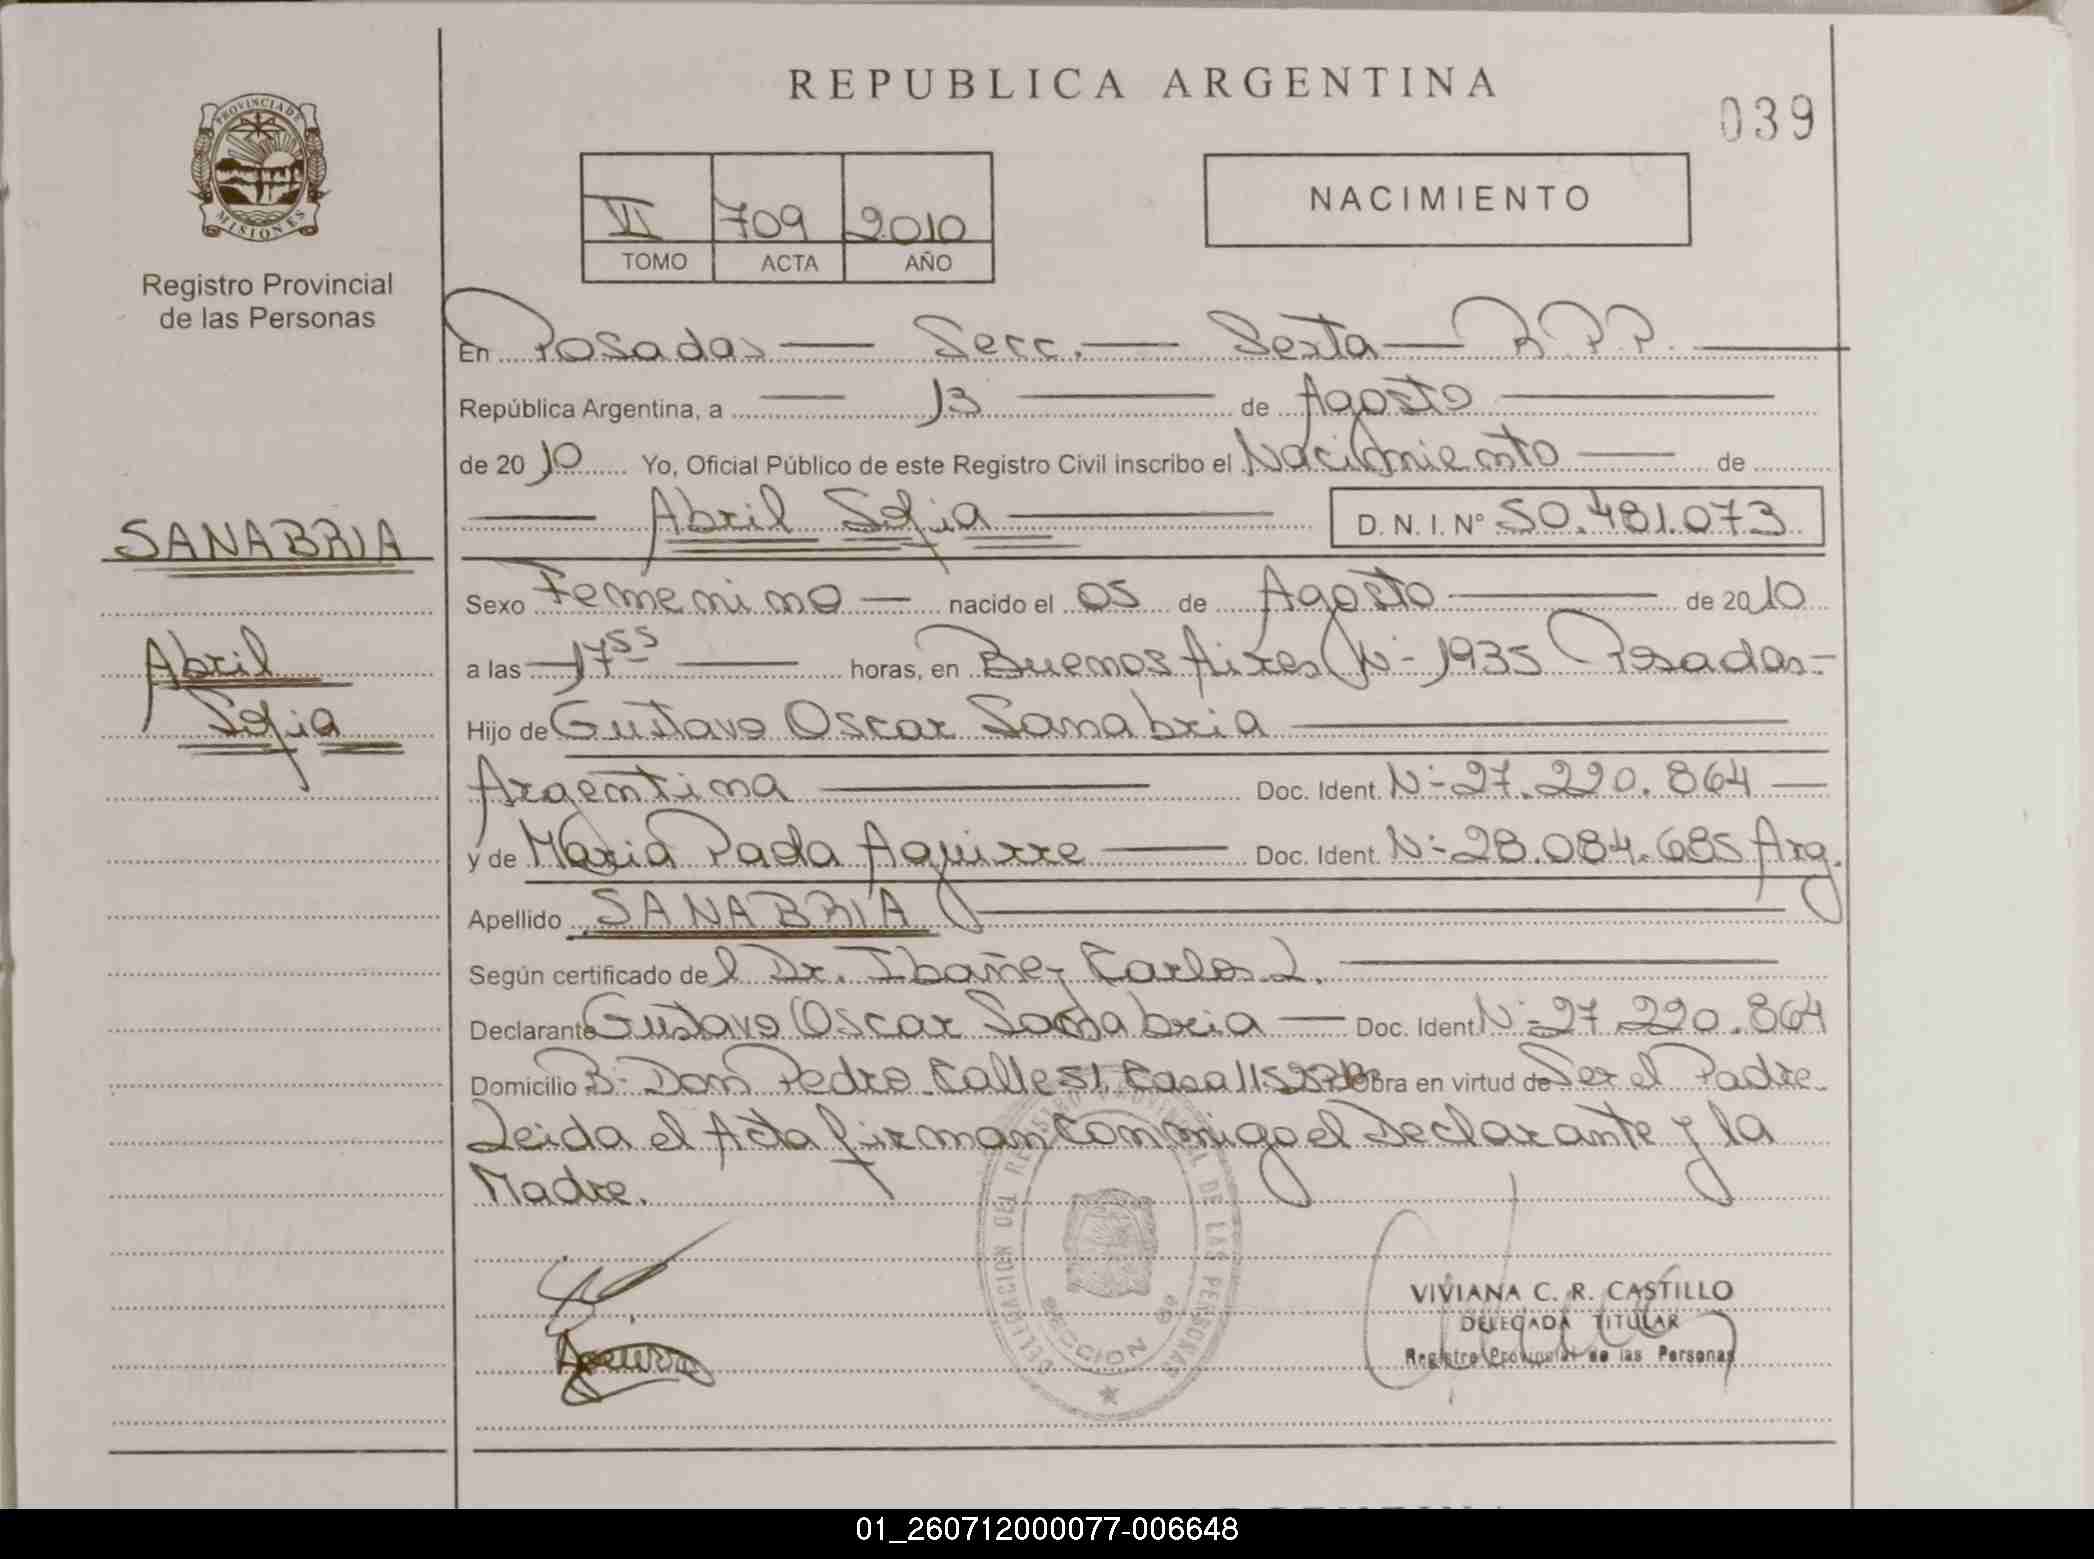 REPUBLICA ARGENTINA
039
PROVINCIA DE
MISIONES
Registro Provincial
de las Personas
VI 709 2010
TOMO ACTA AÑO
NACIMIENTO
En Posadas — Secc. — Sexta — R.P.P. —
República Argentina, a — 13 — de Agosto —
de 2010 Yo, Oficial Público de este Registro Civil inscribo el Nacimiento — de
— Abril Sofia — D. N. I. N° 50.481.073
SANABRIA
Abril
Sofia
Sexo Femenino — nacido el 05 de Agosto — de 2010
a las — 17 55 — horas, en Buenos Aires N- 1935 Posadas-
Hijo de Gustavo Oscar Sanabria —
Argentina — Doc. Ident. N-27.220.864 —
y de Maria Aguirre — Doc. Ident. N-28.084.685 Arg.
Apellido SANABRIA —
Según certificado del Dr. Ibañez Carlos L. —
Declarante Gustavo Oscar Sanabria — Doc. Ident. N-27.220.864
Domicilio B- Don Pedro. Calle 51. Casa Obra en virtud de Ser el Padre
Leida el Acta firman conmigo el Declarante y la
Madre.
DELEGACION DEL REGISTRO PROVINCIAL DE LAS PERSONAS
SECCION 6º
Aguirre
VIVIANA C. R. CASTILLO
DELEGADA TITULAR
Registro Provincial de las Personas
01_260712000077-006648